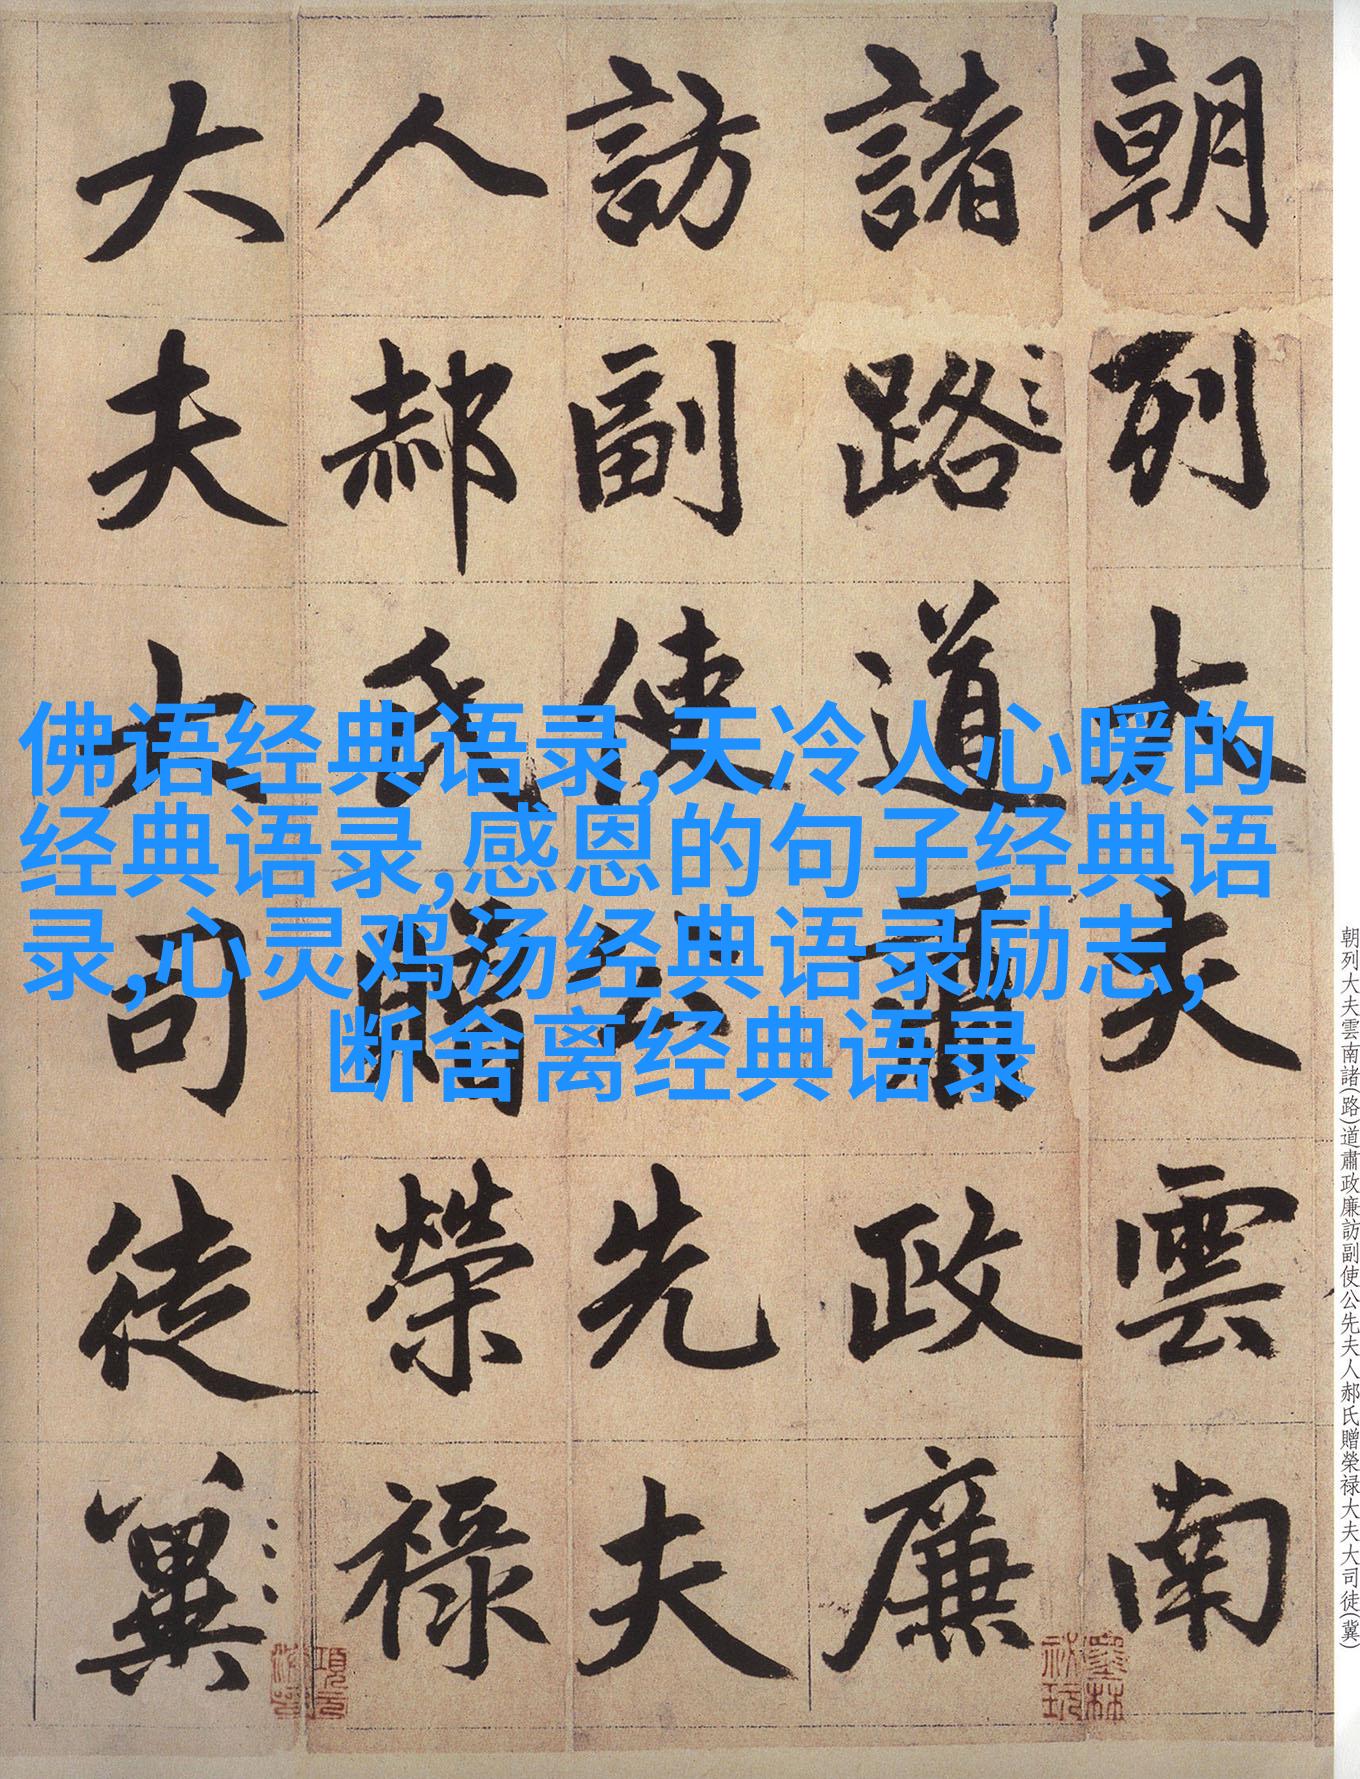 朝列大夫雲南
諸路道肅政廉
訪副使公先夫
人郝氏贈榮禄
大夫大司徒冀
佛语经典语录,天冷人心暖的
经典语录,感恩的句子经典语
录,心灵鸡汤经典语录励志,
断舍离经典语录
朝列大夫雲南諸(路)道肅政廉訪副使公先夫人郝氏贈榮禄大夫大司徒(冀)
墨林祕玩
項元汴印